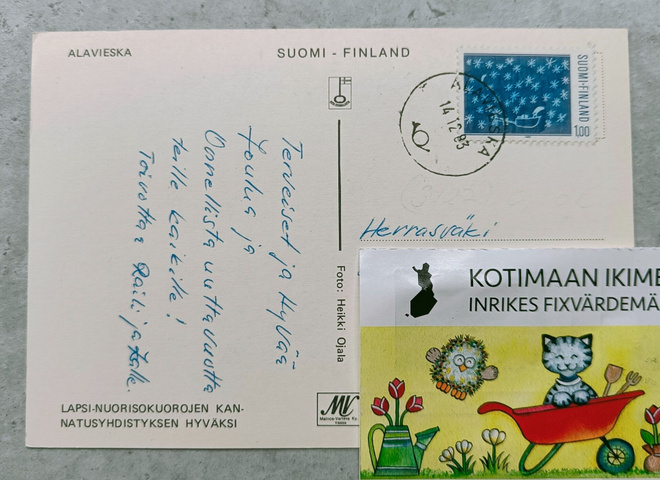 ALAVIESKA
SUOMI - FINLAND
SUOMI-FINLAND
1,00
ALAVIESKA
14.12.83
Terveiset ja Hyvää
Joulua ja
Onnellista uuttavuotta
teille kaikille!
Toivottaa Raili ja Kalle.
Herrasväki
Foto: Heikki Ojala
MV
LAPSI-NUORISOKUOROJEN KAN-
NATUSYHDISTYKSEN HYVÄKSI
KOTIMAAN IKIME
INRIKES FIXVÄRDEMÄ